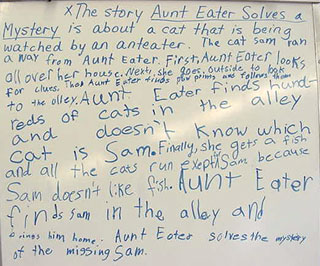 x The story Aunt Eater Solves a
Mystery is about a cat that is being
watched by an anteater. The cat Sam ran
away from Aunt Eater. First, Aunt Eater looks
all over her house. Next, she goes outside to look
for clues. Then Aunt Eater finds paw prints and follows them
to the alley. Aunt Eater finds hund-
reds of cats in the alley
and doesn't know which
cat is Sam. Finally, she gets a fish
and all the cats run exept Sam because
Sam doesn't like fish. Aunt Eater
finds Sam in the alley and
brings him home. Aunt Eater solves the mystery
of the missing Sam.